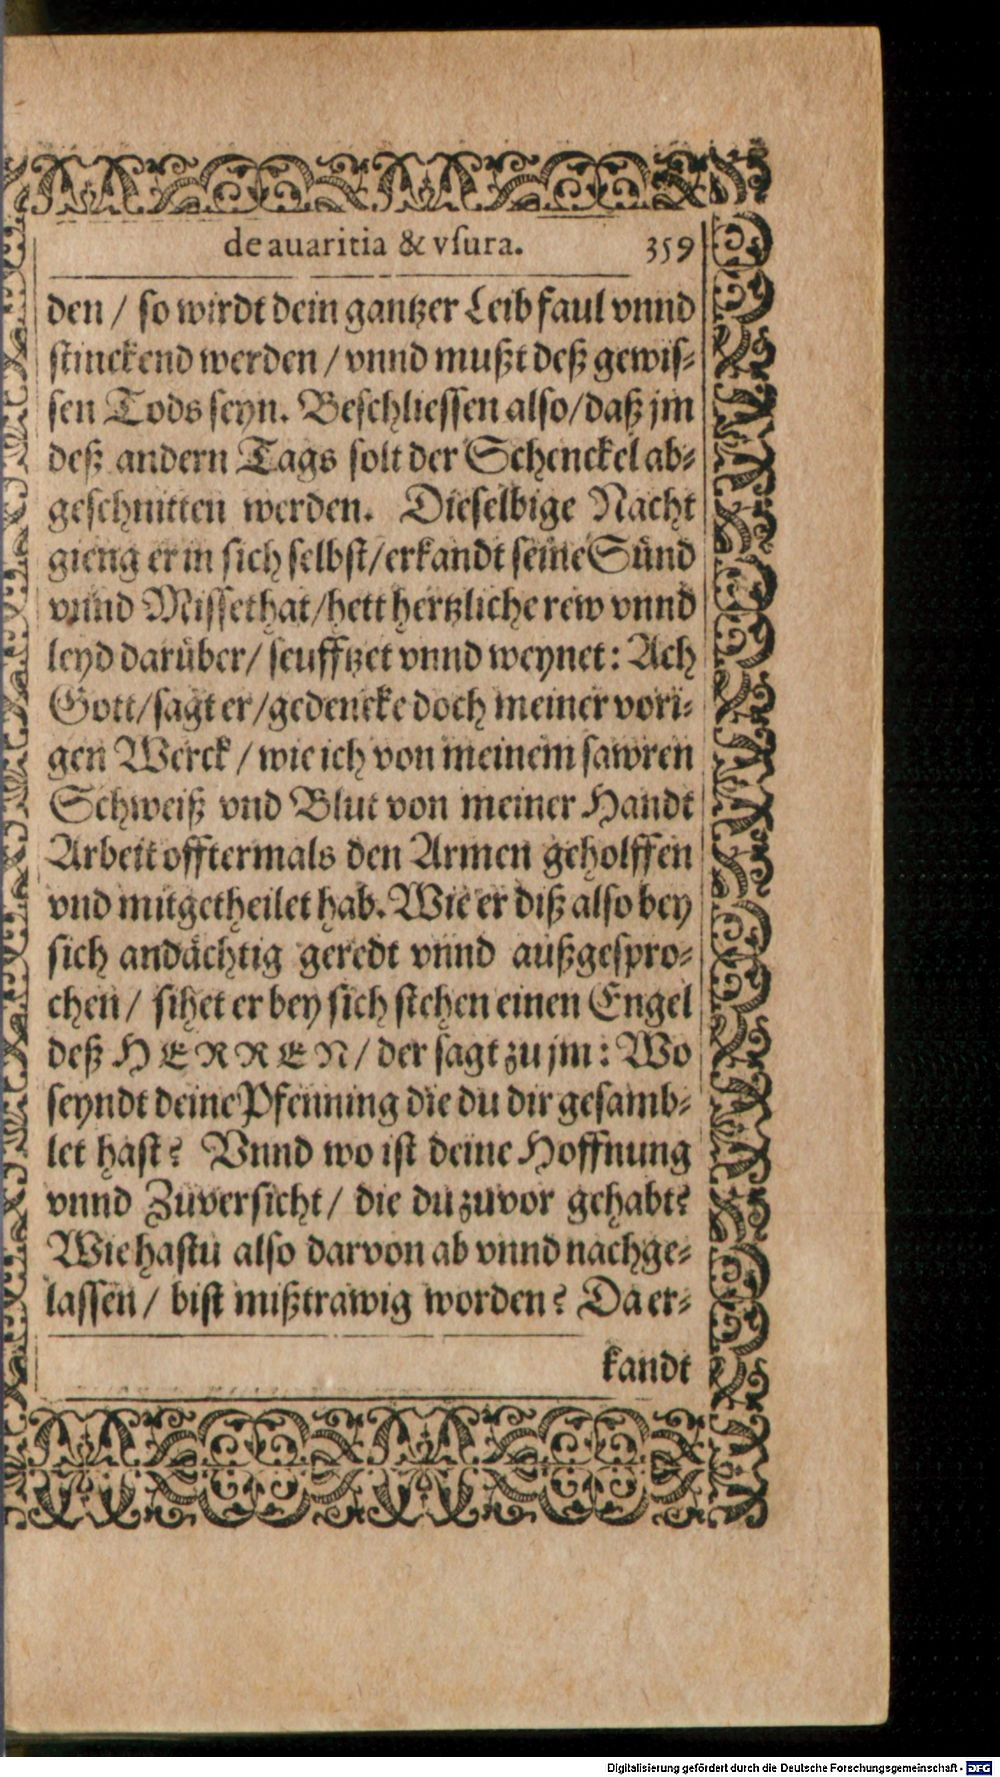 de auaritia & vſura. 359
den / ſo wirdt dein gantzer Leib faul vnnd
ſtinckend werden / vnnd mußt deß gewiſ⸗
ſen Tods ſeyn. Beſchlieſſen alſo / daß jm
deß andern Tags ſolt der Schenckel ab⸗
geſchnitten werden. Dieſelbige Nacht
gieng er in ſich ſelbſt / erkandt ſeine Sünd
vnnd Miſſethat / hett hertzliche rew vnnd
leyd darüber / ſeufftzet vnnd weynet: Ach
Gott / ſagt er / gedencke doch meiner vori⸗
gen Werck / wie ich von meinem ſawren
Schweiß vnd Blut von meiner Handt
Arbeit offtermals den Armen geholffen
vnd mitgetheilet hab. Wie er diß alſo bey
ſich andächtig geredt vnnd außgeſpro⸗
chen / ſihet er bey ſich ſtehen einen Engel
deß HERREN / der ſagt zu jm: Wo
ſeyndt deine Pfenning die du dir geſamb⸗
let haſt? Vnnd wo iſt deine Hoffnung
vnnd Zuverſicht / die du zuvor gehabt?
Wie haſtu alſo darvon ab vnnd nachge⸗
laſſen / biſt mißtrawig worden? Da er⸗
kandt
Digitalisierung gefördert durch die Deutsche Forschungsgemeinschaft - DFG